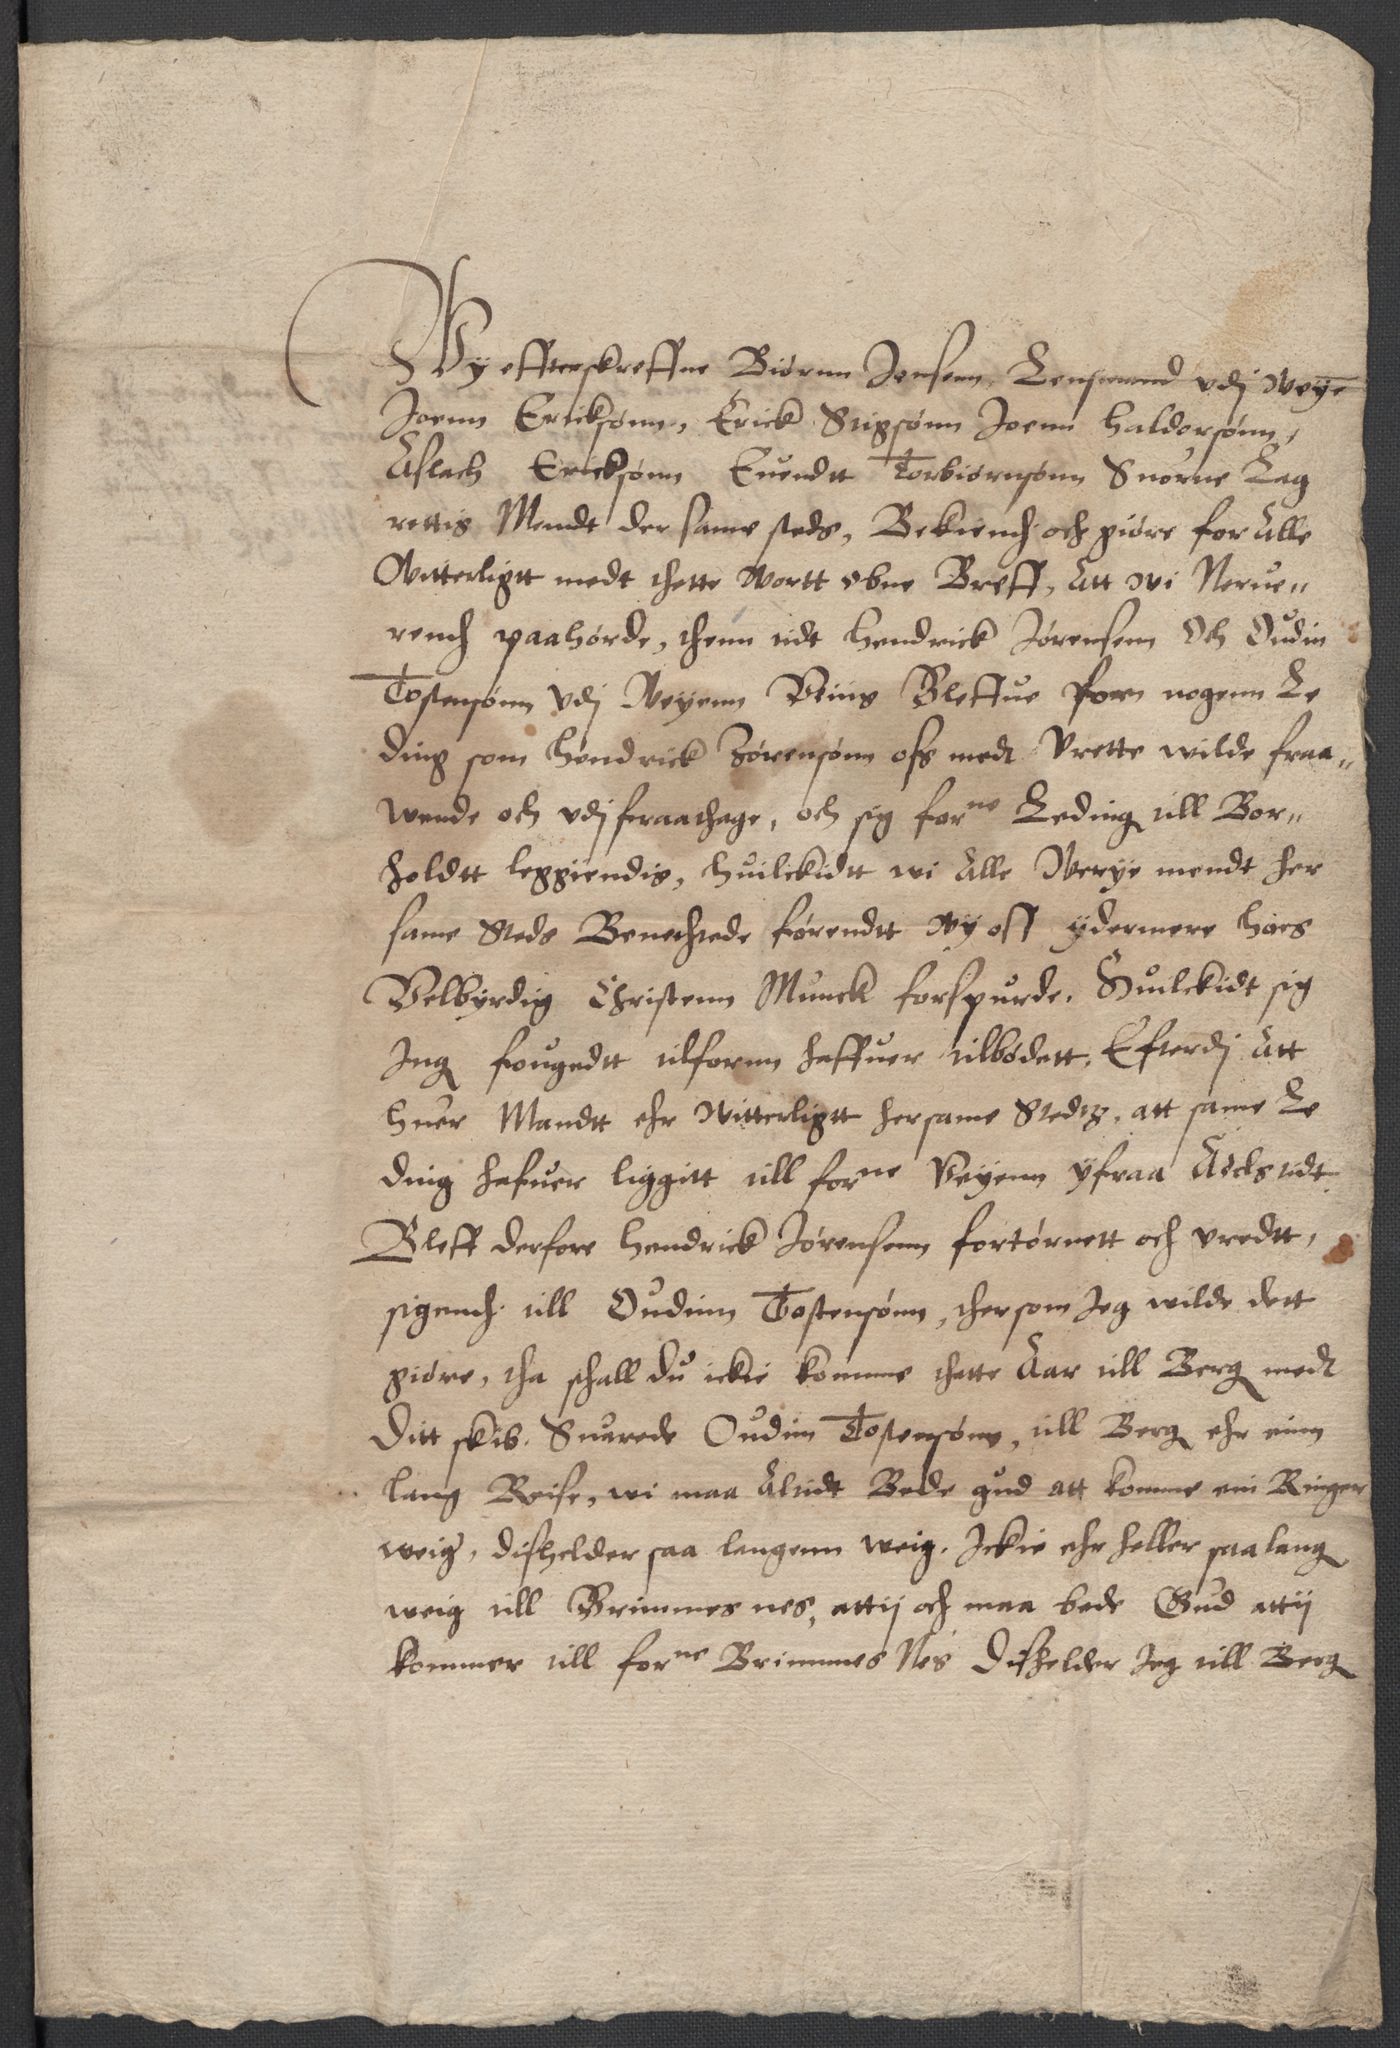 Wy effterskreffne Biørnn Jensenn, Lensmand vdj Weye
Joenn Ericksønn, Erick Stigsønn Joenn Haldorsønn,
Aslach Ericksønn Euendtt Torbiørnsønn Suorne Lag
rettis Mendt der same steds, Bekiend och giøre for Alle
Witterligtt medt thette Wortt obne Breff, Att wi Nerue„
rend paahørde, thenn tidt Hendrick Jørensenn Och Oudin
Tostensønn vdj Weyenn Bleffue forn nogenn Le
ding som Hendrick Jørensønn oss medt Vrette wilde fraa„
wende och vdj fraathage, och sig forne Leding till Bor„
holdtt leggiendis, huilckidtt wi Alle Werye mendt her
same Steds Benechtede førendtt Wy oss ydermere hoes
Velbyrdig Christenn Munck forspurde. Huilckidt sig
Ing fougedtt tilfornn haffuer tilbødett. Efterdj Att
huer Mandtt ehr Witterligtt hersame Stedtz, att same Le
ding hafuer liggitt till forne Veyenn yfraa Aolds tidt
Bleff derfore Hendrick Jørensenn fortørnett och vredtt,
sigend till Oudinn Tostensønn, thersom Jeg wilde dett
giøre, tha schall du ickie komme thette Aar till Berg medt
Ditt skib. Suarede Oudinn Tostensønn, till Berg ehr einn
lang Reise, wi maa Altidt Bede gud att komme ein Ringer
weig, disthelder saa langenn weig. Ickie ehr heller saa lang
weig till Brimmes nes, attij och maa bede Gud attij
kommer till forne Brimmes Nes Disthelder Jeg till Berg